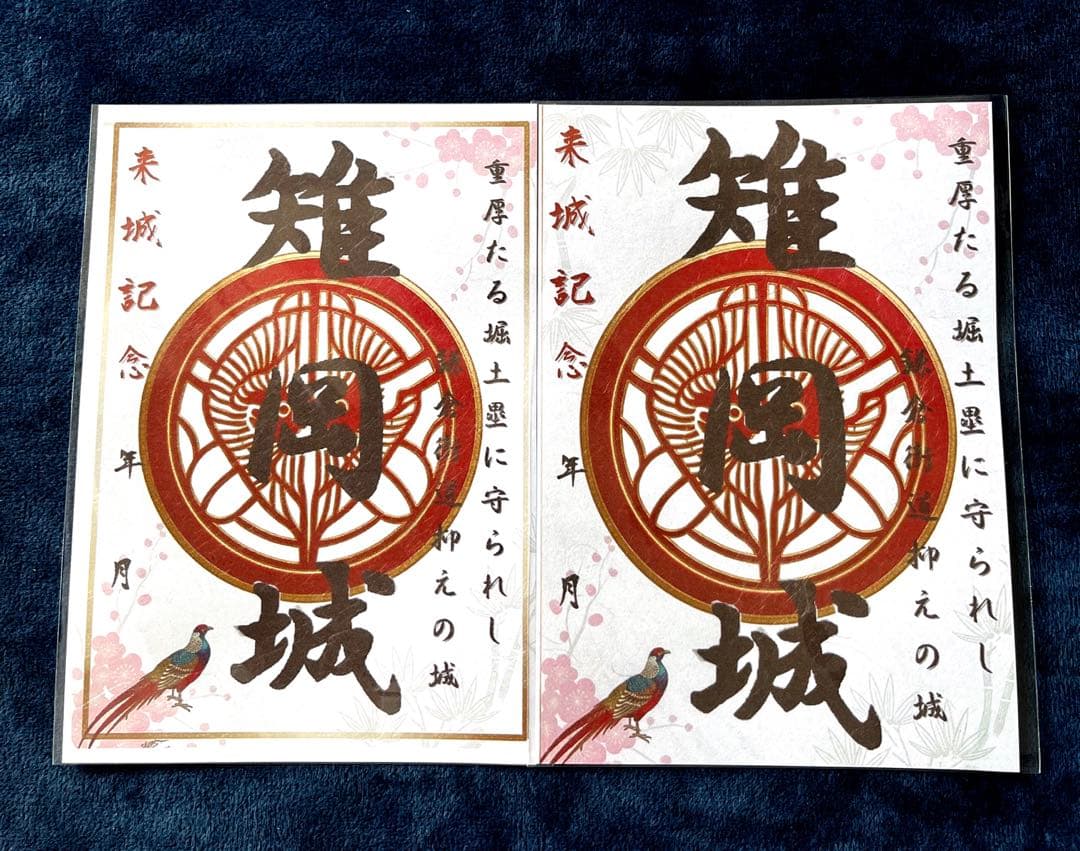 重厚たる堀土塁に守られし
鎌倉街道抑えの城
雉岡城
来城記念
年 月
重厚たる堀土塁に守られし
鎌倉街道抑えの城
雉岡城
来城記念
年 月